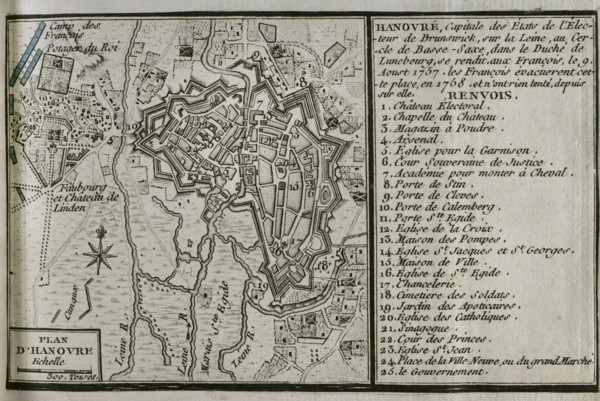 Camp des
François
Potager du Roi
Faubourg
et Château de
Linden
Canaux
Leine R.
Leine R.
Marais Ste Egide
Leine R.
PLAN
D'HANOVRE
Echelle
300. Toises.
HANOVRE, Capitale des Etats de l'Elec-
-teur de Brunswick, sur la Leine, au Cer-
-cle de Basse-Saxe, dans le Duché de
Lunebourg, se rendit aux François, le 9.
Aoust 1757. les François évacuerent cet-
-te place, en 1758. et n'ont rien tenté, depuis
sur elle.
RENVOIS.
1. Château Electoral.
2. Chapelle du Château.
3. Magazin à Poudre.
4. Arsenal.
5. Eglise pour la Garnison.
6. Cour Souveraine de Justice.
7. Académie pour monter à Cheval.
8. Porte de Stin.
9. Porte de Cleves.
10. Porte de Calemberg.
11. Porte Ste Egide.
12. Eglise de la Croix.
13. Maison des Pompes.
14. Eglise St. Jacques et St. Georges.
15. Maison de Ville.
16. Eglise de Ste Egide.
17. Chancelerie.
18. Cimetiere des Soldats.
19. Jardin des Apoticaires.
20. Eglise des Catholiques.
21. Sinagogue.
22. Cour des Princes.
23. Eglise St Jean.
24. Place de la Ville Neuve, ou du grand Marché
25. le Gouvernement.